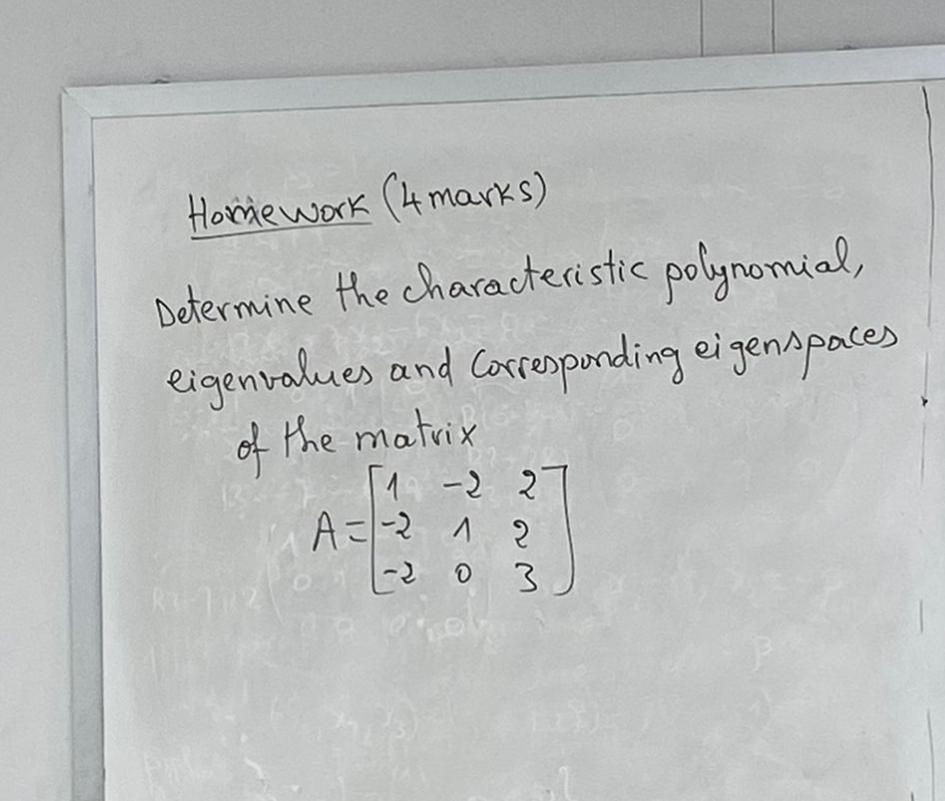 Homework (4 marks)
Determine the characteristic polynomial,
eigenvalues and Corresponding eigenspaces
of the matrix
A = [1 -2 2
-2 1 2
-2 0 3]